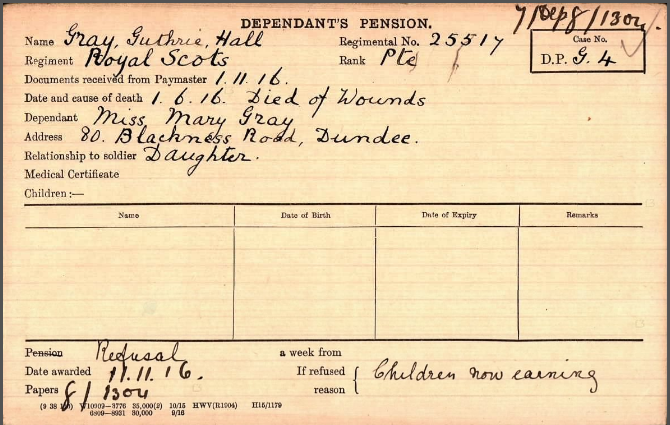 DEPENDANT'S PENSION.
7/Dep/8/1304.
Name Gray, Guthrie, Hall Regimental No. 25517
Case No.
Regiment Royal Scots Rank Pte
D.P. G. 4
Documents received from Paymaster 1.11.16.
Date and cause of death 1.6.16. Died of Wounds
Dependant Miss Mary Gray
Address 80. Blackness Road, Dundee.
Relationship to soldier Daughter.
Medical Certificate
Children:—
Name Date of Birth Date of Expiry Remarks
Pension Refusal a week from
Date awarded 11.11.16. If refused reason { Children now earning
Papers 8/1304
W10909—3776 35,000(2) 10/15 HWV(R1904) H15/1179
6809—8931 30,000 9/16